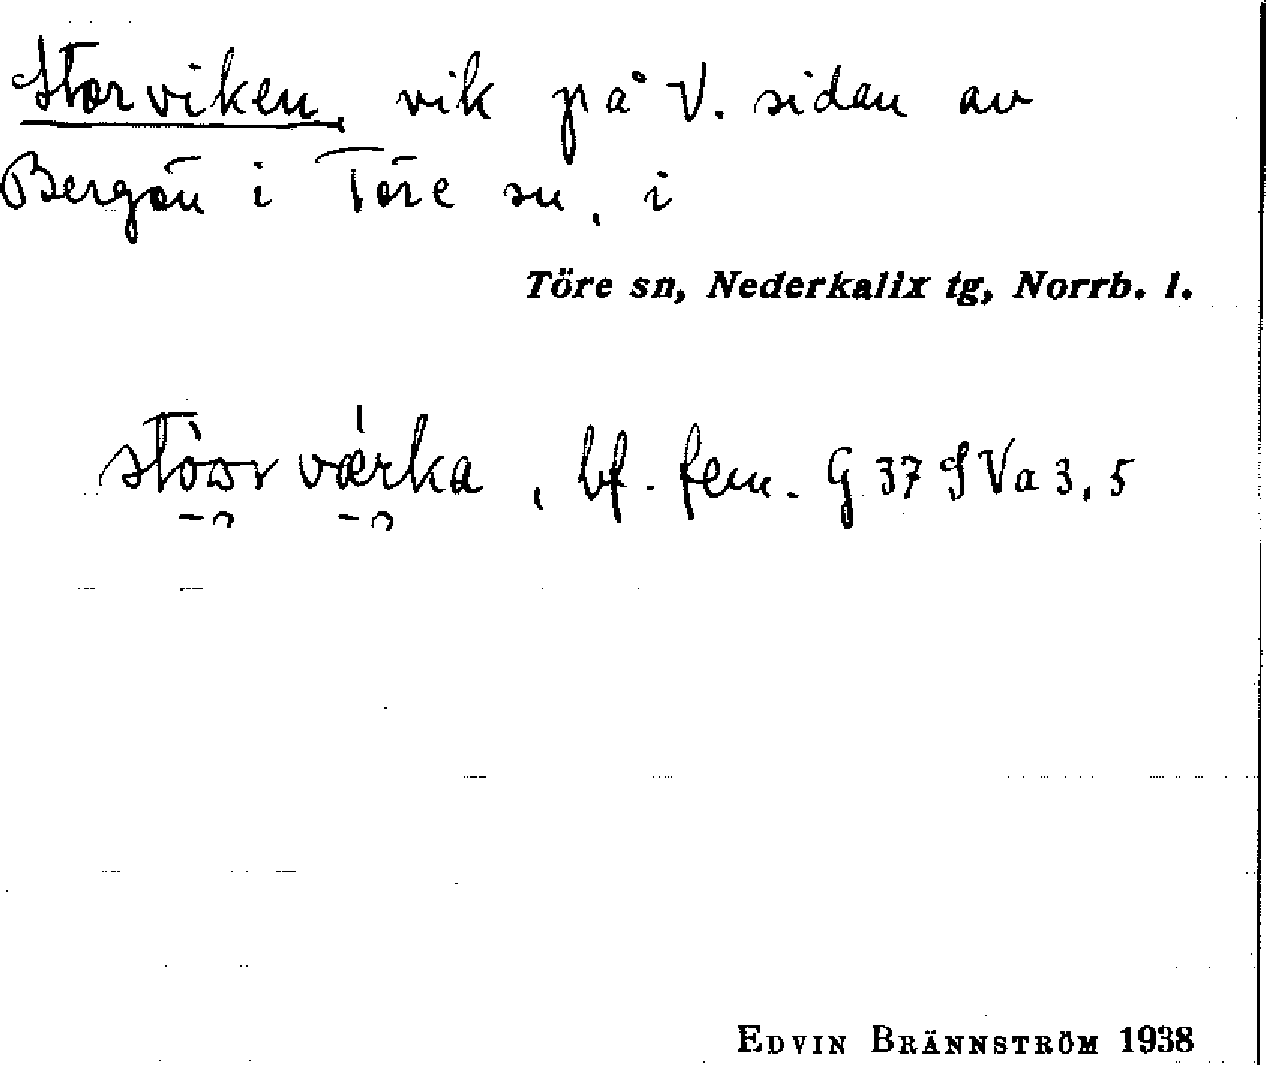 Storviken, vik på V. sidan av
Bergön i Töre sn, i
Töre sn, Nederkalix tg, Norrb. l.
värka, bf. fem. G 37 SVa 3, 5
EDVIN BRÄNNSTRÖM 1938